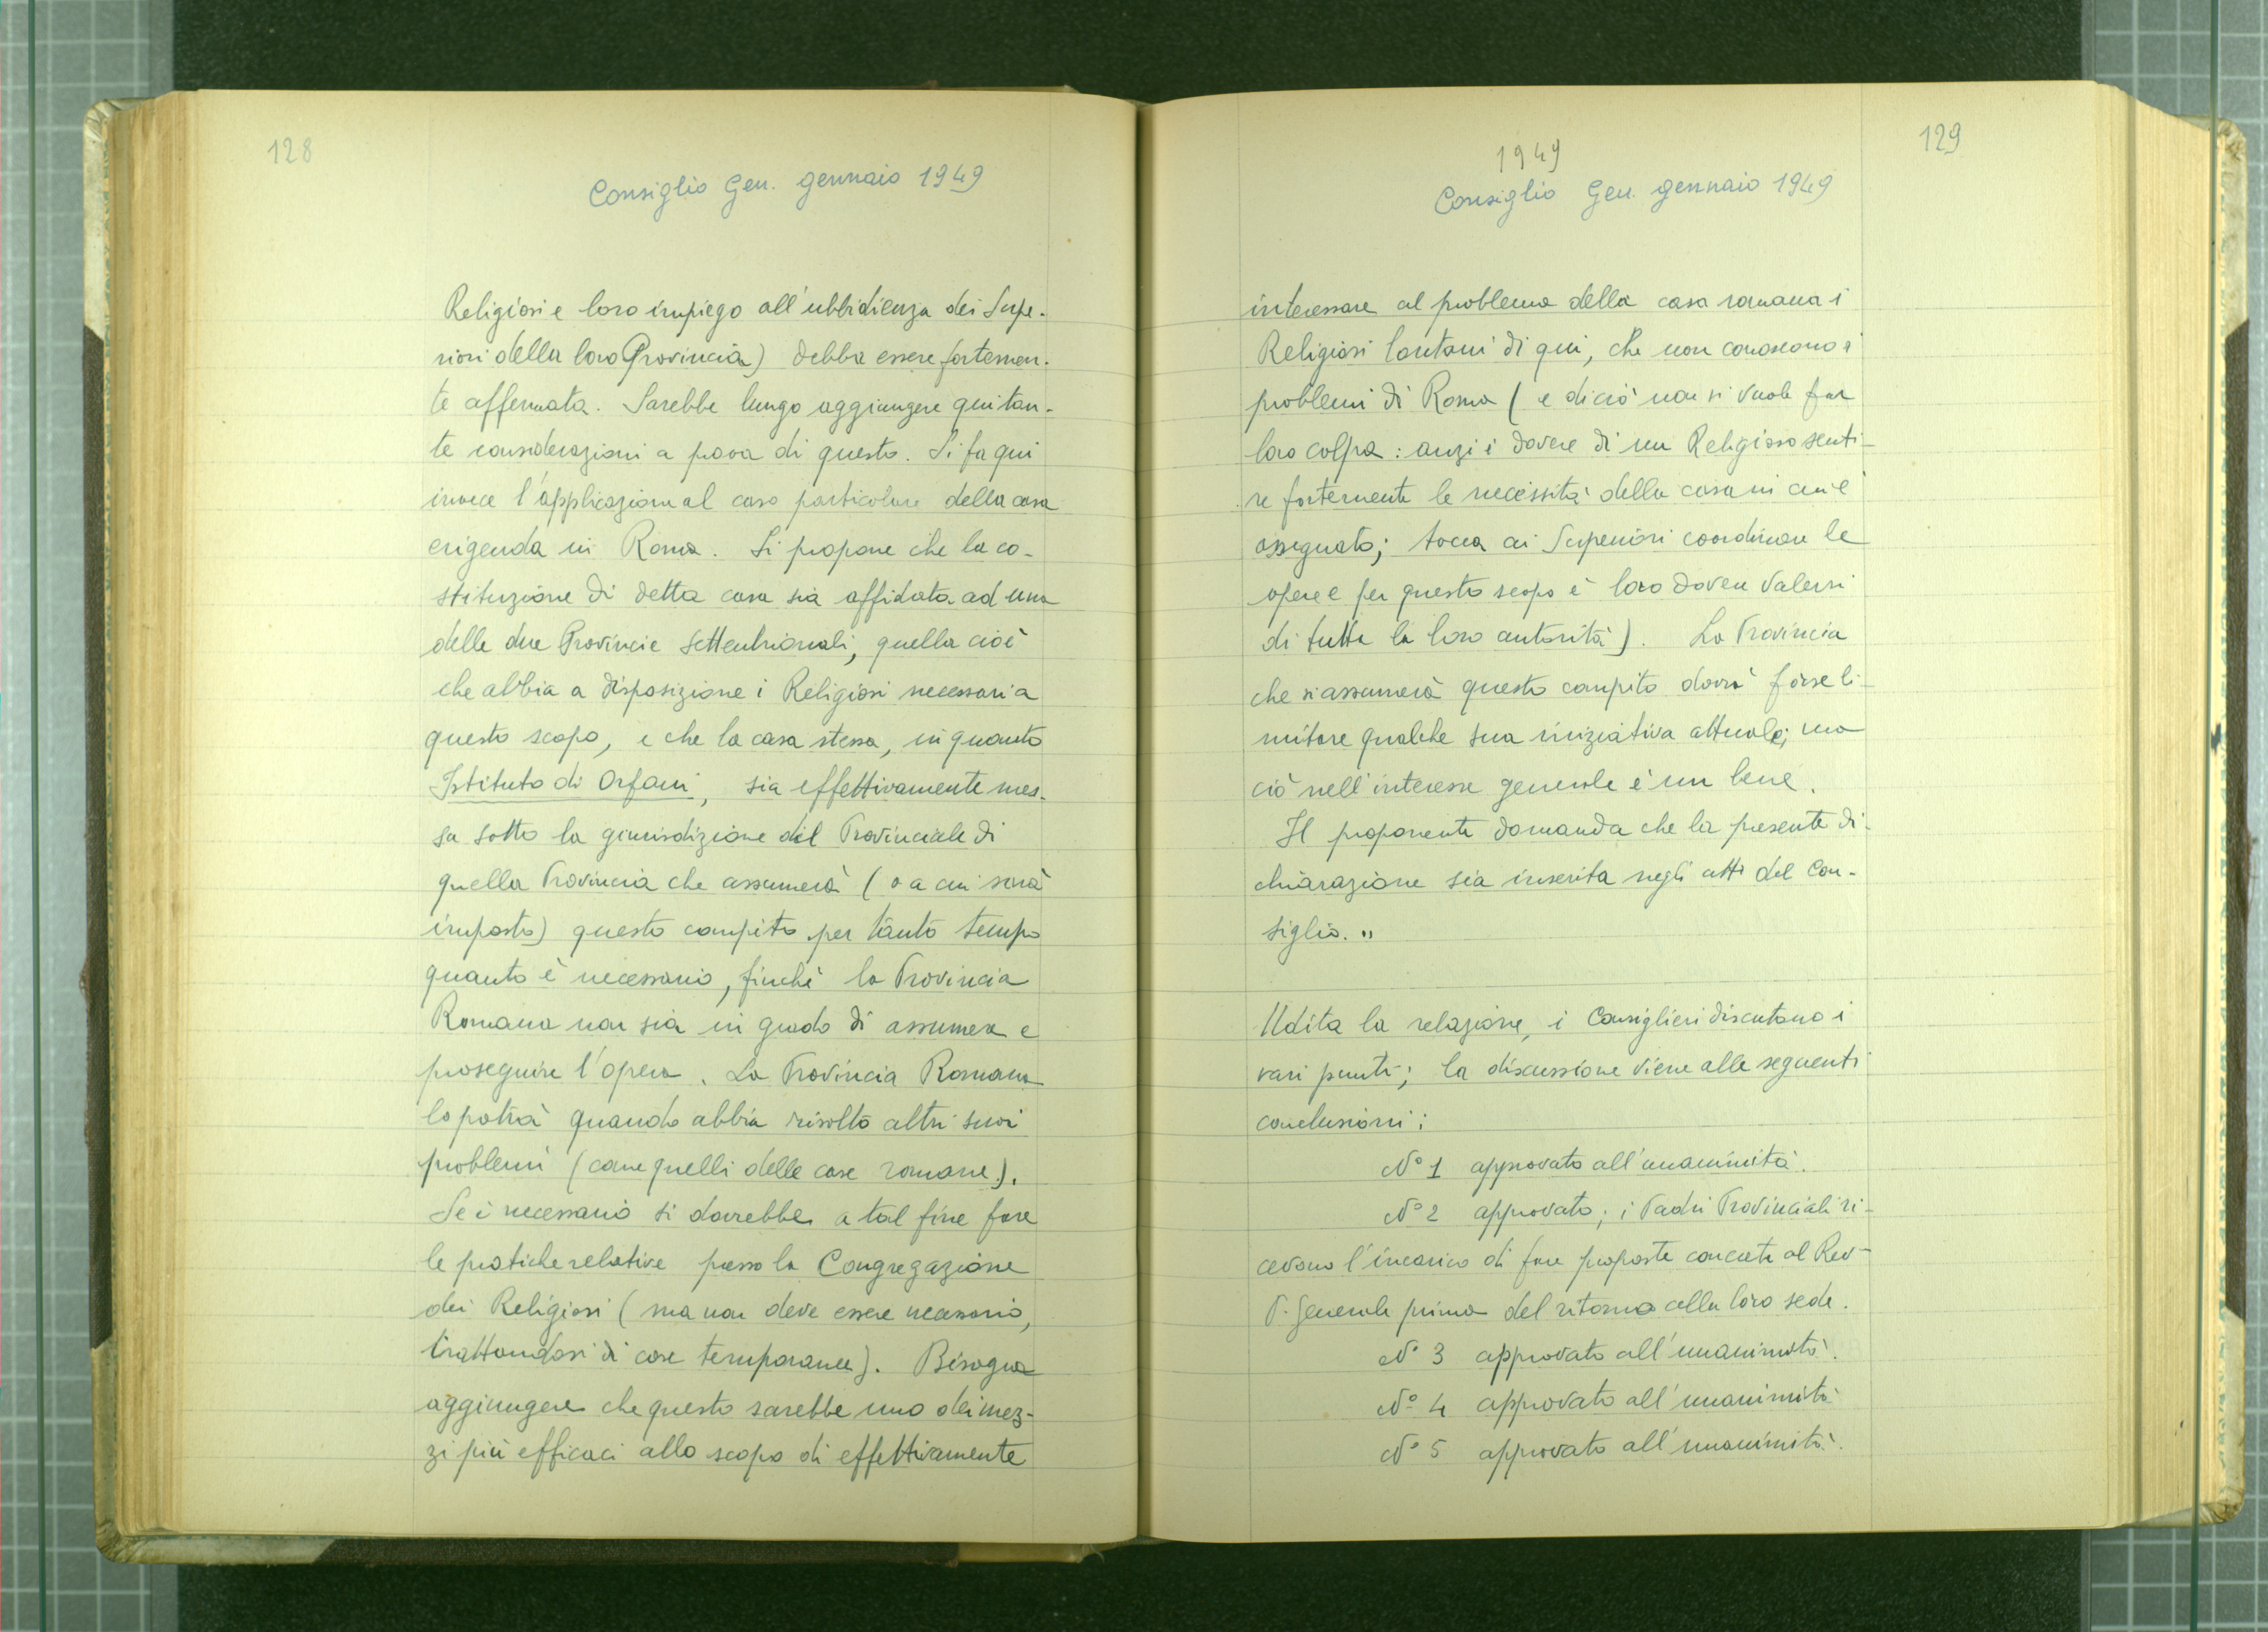 128
Consiglio Gen. gennaio 1949
Religiosi e loro impiego all'ubbidienza dei Supe-
riori della loro Provincia) debba essere fortemen-
te affermata. Sarebbe lungo aggiungere qui tan-
te considerazioni a prova di questo. Si fa qui
invece l'applicazione al caso particolare della casa
erigenda in Roma. Si propone che la co-
stituzione di detta casa sia affidata ad una
delle due Provincie Settentrionali, quella cioè
che abbia a disposizione i Religiosi necessari a
questo scopo, e che la casa stessa, in quanto
Istituto di Orfani, sia effettivamente mes-
sa sotto la giurisdizione del Provinciale di
quella Provincia che assumerà (o a cui sarà
imposto) questo compito per tanto tempo
quanto è necessario, finchè la Provincia
Romana non sia in grado di assumere e
proseguire l'opera. La Provincia Romana
lo potrà quando abbia risolto altri suoi
problemi (come quelli delle case romane).
Se è necessario si dovrebbe a tal fine fare
le pratiche relative presso la Congregazione
dei Religiosi (ma non deve essere necessario,
trattandosi di cose temporanee). Bisogna
aggiungere che questo sarebbe uno dei mez-
zi più efficaci allo scopo di effettivamente
129
1949
Consiglio Gen. gennaio 1949
interessare al problema della casa romana i
Religiosi lontani di qui, che non conoscono i
problemi di Roma (e di ciò non si vuole far
loro colpa: anzi è dovere di un Religioso senti-
re fortemente le necessità della casa in cui è
assegnato; tocca ai Superiori coordinare le
opere e per questo scopo è loro dovere valersi
di tutta la loro autorità). La Provincia
che si assumerà questo compito dovrà forse li-
mitare qualche sua iniziativa attuale; ma
ciò nell'interesse generale è un bene.
Il proponente domanda che la presente di-
chiarazione sia inserita negli atti del Con-
siglio. "
Udita la relazione, i Consiglieri discutono i
vari punti; la discussione viene alle seguenti
conclusioni:
N° 1 approvato all'unanimità.
N° 2 approvato; i Padri Provinciali ri-
cevono l'incarico di fare proposte concrete al Rev-
P. Generale prima del ritorno alla loro sede.
N° 3 approvato all'unanimità.
N° 4 approvato all'unanimità
N° 5 approvato all'unanimità.